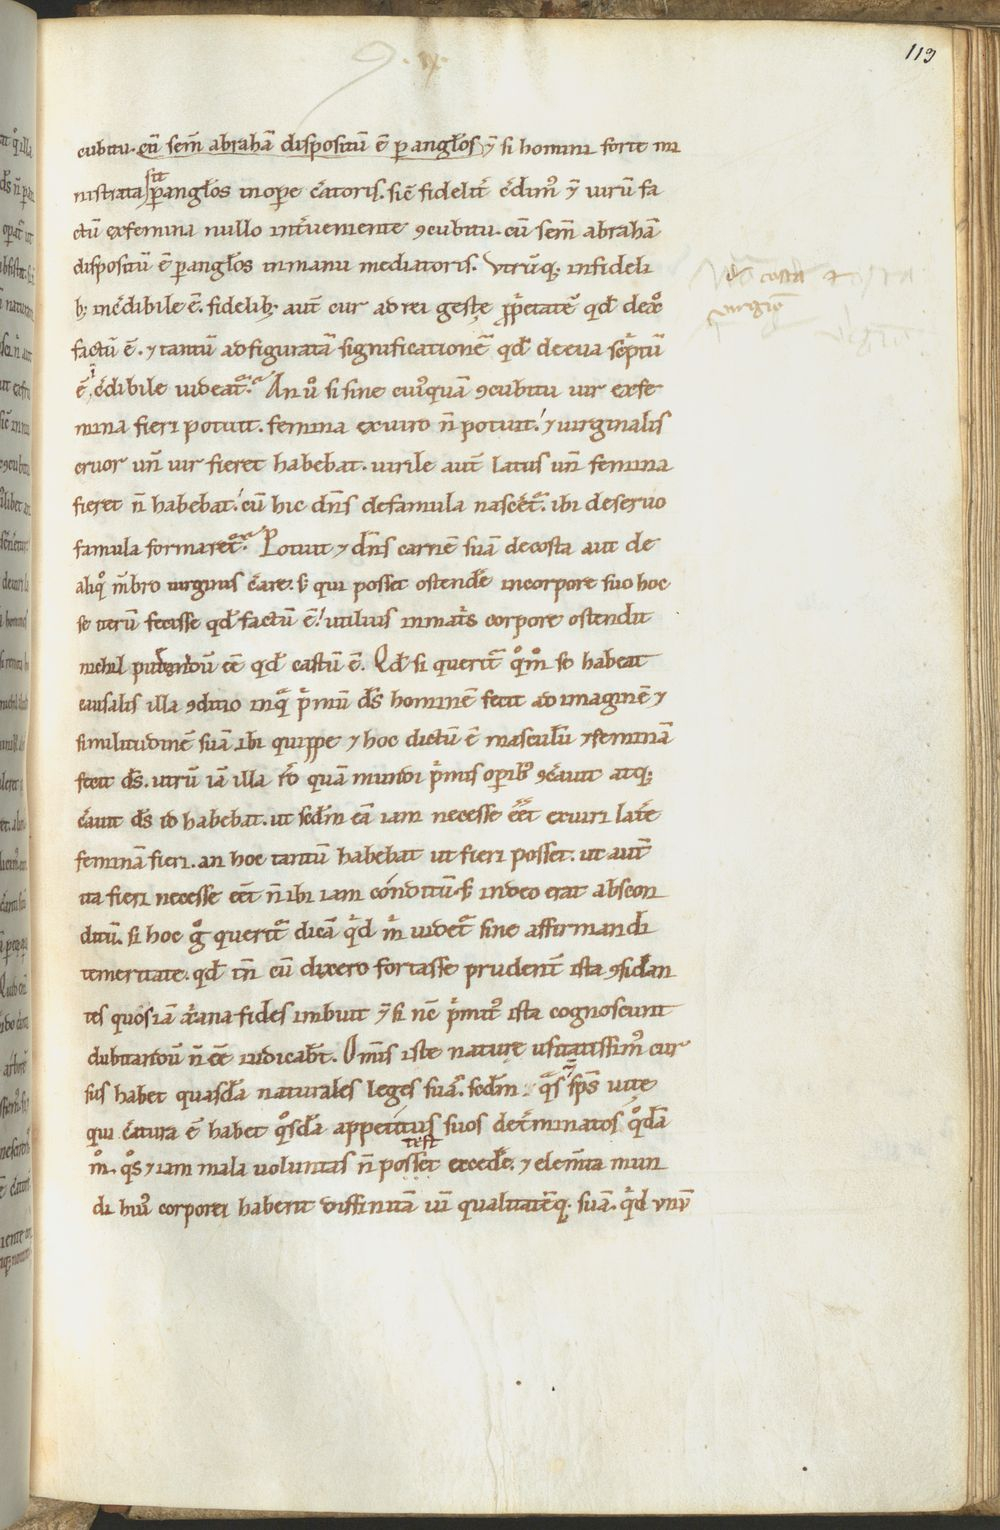 119
cubitu. cũ sem̃ abrahã dispositũ ẽ p angł̃os ⁊̃ si homini forte mi
nistrata sit
p angł̃os in ope c̃atoris. sic̃ fidelit̃ c̃dim᷒ ⁊̃ uirũ fa
ctũ ex femina nullo int̃ueniente ꝯcubitu. cũ sem̃ abrahã
dispositũ ẽ p angł̃os in manu mediatoris. Vtrũq; infideli
b; inc̃dibile ẽ. fidelib; aut̃ cur ad rei gestę ꝓp̃etatẽ qd̃ de xp̃o
factũ ẽ. ⁊ tantũ ad figuratã significationẽ qd̃ de eua sc̃ptũ
ẽ. c̃dibile uideat̃. An u᷒o si sine cui᷒quã ꝯcubitu uir ex fe
mina fieri potuit. femina ex uiro ñ potuit. ⁊ uirginalis
eruor uñ uir fieret habebat. uirile aut̃ latus uñ femina
fieret ñ habebat. cũ hic dñs de famula nascet̃. ibi de seruo
famula formaret̃. Potuit ⁊ dñs carnẽ suã de costa aut de
aliq̊ m̃bro uirginis c̃are. s; qui posset ostend̃e in corpore suo hoc
se iterũ fecisse qd̃ factũ ẽ. utilius in mat̃s corpore ostendit
nichil pudendũ eẽ qd̃ castũ ẽ. Qd̃ si querit̃ q̊m̊ se habeat
causalis illa ꝯditio in q̃ p̃mũ dš hominẽ fecit ad imaginẽ ⁊
similitudinẽ suã. ibi quippe ⁊ hoc dictũ ẽ masculũ ⁊ feminã
fecit dš. utrũ iã illa r̃o quã mundi p̃mis opib᷒ ꝯc̃auit atq;
c̃auit dš id habebat. ut scdm̃ eã iam necesse eẽt ex uiri lat̃e
feminã fieri. an hoc tantũ habebat ut fieri posset. ut aut̃
ita fieri necesse eẽt ñ ibi iam conditũ s; in deo erat abscon
ditũ. si hoc g̊ querit̃ dicã q̇d m̃ uidet̃ sine affirmandi
temeritate. qd̃ tñ cũ dixero fortasse prudent̃ ista ꝯsid̃an
tes quos iã xp̃iana fides imbuit ⁊̃ si nc̃ p̃mit᷒ ista cognoscunt
dubitandũ ñ eẽ iudicab̃t. Om̃is iste naturę usitatissim᷒ cur
sus habet quasdã naturales leges suas. scdm̃ q̃s ⁊̃ sp̃s uitę
qui c̃atura ẽ habet q̊sdã appetitus suos det̃minatos q̊dã
m̊. q̊s ⁊iam mala uoluntas ñ posset
test
exced̃e. ⁊ elem̃ta mun
di hui᷒ corporei habent diffinitã uim qualitatẽq; suã. q̇d unũ